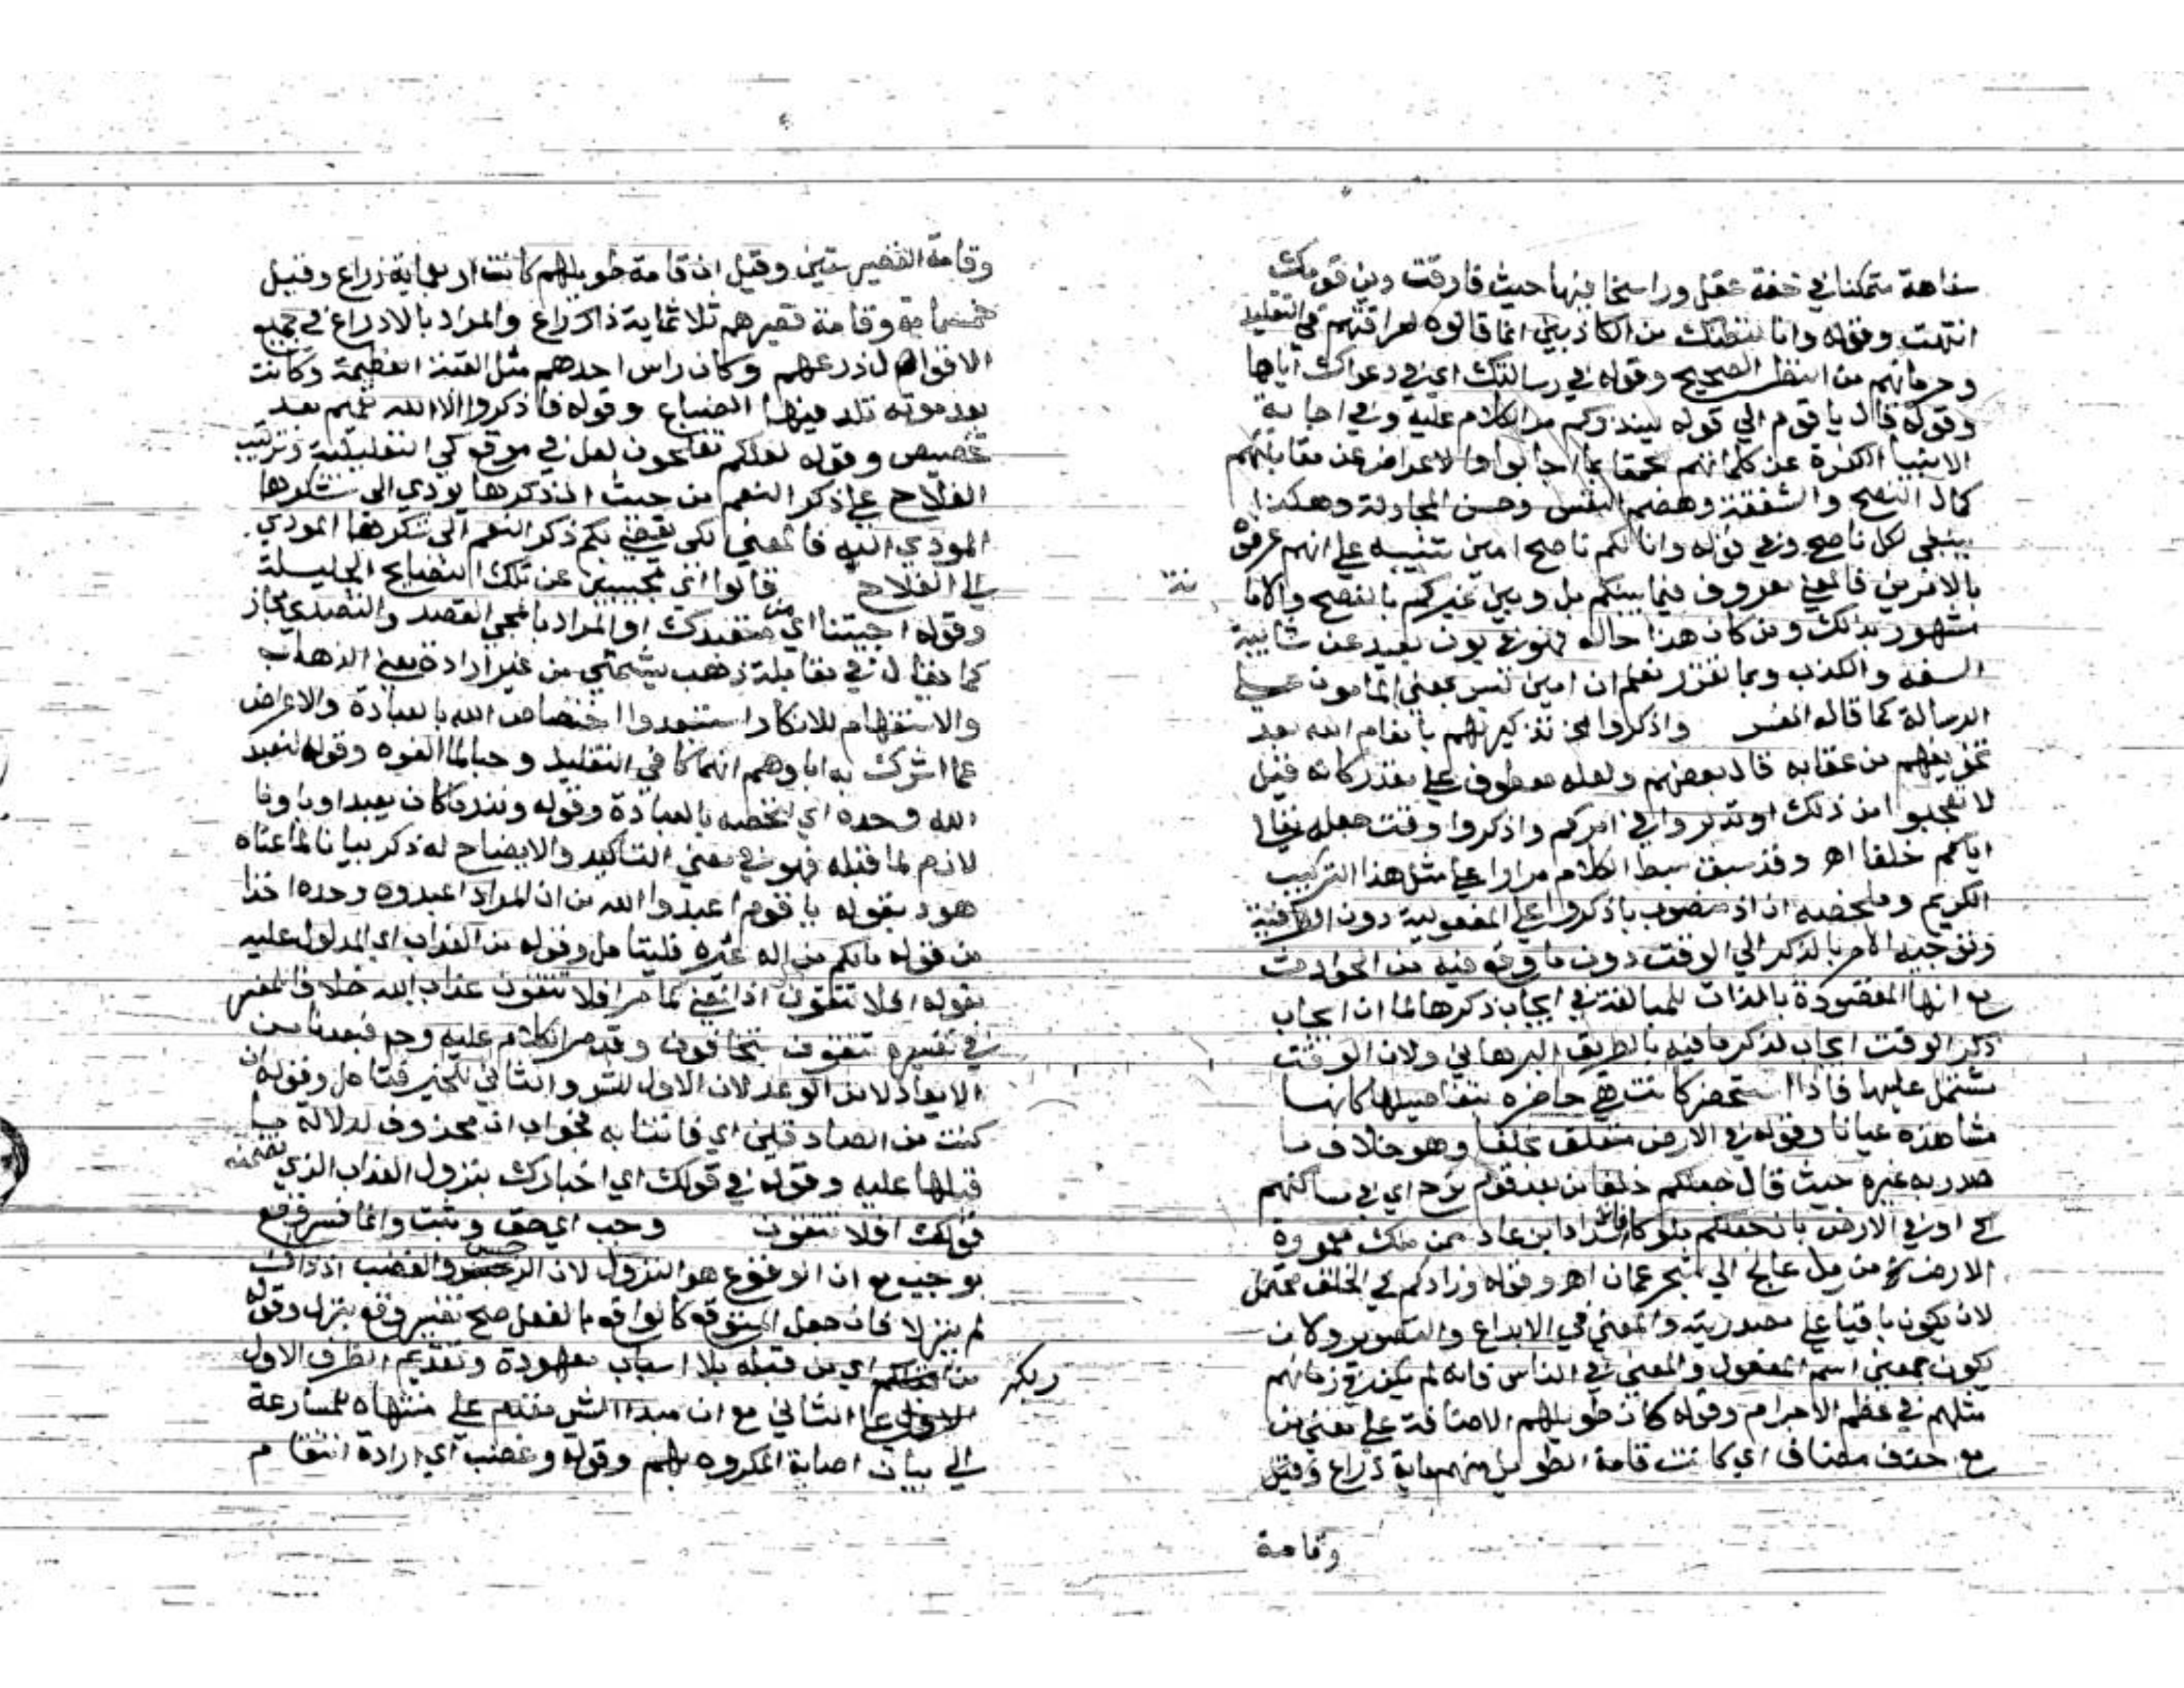 سفاهة متمكنا في خفة عقل وراسخا فيها حيث فارقت دين قومك
انتهت وقوله وانا لنظنك من الكاذبين انما قالوه لعراقتهم في التقليد
وحرمانهم من النظر الصحيح وقوله في رسالتك اي في دعواك اياها
وقوله قال يا قوم الي قوله لينذركم مر الكلام عليه وفي اجابة
الانبيا الكفرة عن كلماتهم بما اجابوا والاعراض عن مقابلتهم
كمال النصح والشفقة وهضم النفس وحسن المجادلة وهكذا
ينبغي لكل ناصح وفي قوله وانا لكم ناصح امين تنبيه علي انهم عرفوه
بالامرين فالمعني معروف فيما بينكم بل وبين غيركم بالنصح والاما
نة
مشهور بذلك ومن كان هذا حاله فهو في بون بعيد عن شائبة
السفه والكذب وبما تقرر تعلم ان امين ليس بمعني المامون علي
الرسالة كما قاله المفسر واذكروا الخ تذكير لهم بانعام الله بعد
تخويفهم من عقابه قال بعضهم ولعله معطوف علي مقدر كانه قيل
لا تعجبوا من ذلك او تدبروا في امركم واذكروا وقت جعله تعالي
اياكم خلفا اهـ وقد سبق بسط الكلام مرارا علي مثل هذا التركيب
الكريم وملخصه ان اذ منصوب باذكروا علي المفعولية دون الظرفية
وتوجيه الامر بالذكر الي الوقت دون ما وقع فيه من الحوادث
مع انها المقصودة بالذات للمبالغة في ايجاب ذكرها لما ان ايجاب
ذكر الوقت ايجاب لذكر ما فيه بالطريق البرهاني ولان الوقت
مشتمل عليها فاذا استحضر كانت هي حاضرة بتفاصيلها كانها
مشاهدة عيانا وقوله في الارض متعلق بخلفا وهو خلاف ما
صدر به غيره حيث قال جعلكم خلفا من بعد قوم نوح اي في مساكنهم
او في الارض بان جعلكم ملوكا فان شداد ابن عاد ممن ملك معمورة
الارض من رمل عالج الي بحر عمان اهـ وقوله وزادكم في الخلق محتمل
لان يكون باقيا علي مصدريته والمعني في الابداع والتصوير وكان
يكون بمعني اسم المفعول والمعني في الناس فانه لم يكن في زمانهم
مثلهم في عظم الاجرام وقوله كان طويلهم الاضافة علي معني من
مع حذف مضاف اي كانت قامة الطويل منهم ماية ذراع وقيل
وقامة
وقامة القصير ستين وقيل ان قامة طويلهم كانت اربعماية ذراع وقيل
خمسماية وقامة قصيرهم ثلاثماية ذراع والمراد بالاذراع في جميع
الاقوال ذرعهم وكان راس احدهم مثل القبة العظيمة وكانت
بعد موته تلد فيها الضباع وقوله فاذكروا الاء الله تعميم بعد
تخصيص وقوله لعلكم تفلحون لعل في موقع كي التعليلية وترتيب
الفلاح علي ذكر النعم من حيث ان ذكرها يودي الي شكرها
المودي اليه فالمعني لكي يفضي بكم ذكر النعم الي شكرها المودي
الي الفلاح قالوا اي مجيبين عن تلك النصايح الجليلة
وقوله اجيتنا اي من متعبدك او المراد بالمجي القصد والتصدي مجاز
كما يقال في مقابلة ذهب يشتمني من غير ارادة معني الذهاب
والاستفهام للانكار استبعدوا اختصاص الله بالعبادة والاعراض
عما اشرك به اباوهم انهماكا في التقليد وحبا لما الفوه وقوله لنعبد
الله وحده اي لنخصه بالعبادة وقوله ونذر ما كان يعبد اباونا
لازم لما قبله فهو في معني التاكيد والايضاح له ذكر بيانا لما عناه
هود بقوله يا قوم اعبدوا الله من ان المراد اعبدوه وحده اخذا
من قوله ما لكم من اله غيره فليتامل وقوله من العذاب اي المدلول عليه
بقوله افلا تتقون اذ المعني كما مر افلا تتقون عذاب الله خلافا للمفسر
في تفسيره تتقون بتخافون وقد مر الكلام عليه وجم فتعدنا من
الايعاد لا من الوعد لان الاول للشر والثاني للخير فتامل وقوله ان
كنت من الصادقين اي فاتنا به فجواب ان محذوف لدلالة ما
قبلها عليه وقوله في قولك اي اخبارك بنزول العذاب الذي تضمنه
قولك افلا تتقون وجب اي حق وثبت وانما فسر وقع
بوجب مع ان الوقوع هو النزول لان الرجس والغضب اذ ذاك
لم ينزلا فان جعل المتوقع كالواقع بالفعل صح تفسير وقع بنزل وقوله
من ربكم اي من قبله بلا اسباب معهودة وتقديم الظرف الاول
علي الثاني مع ان مبدا الشي متقدم علي منتهاه للمسارعة
الي بيان اصابة المكروه لهم وقوله وغضب اي ارادة انتقام
ربكم